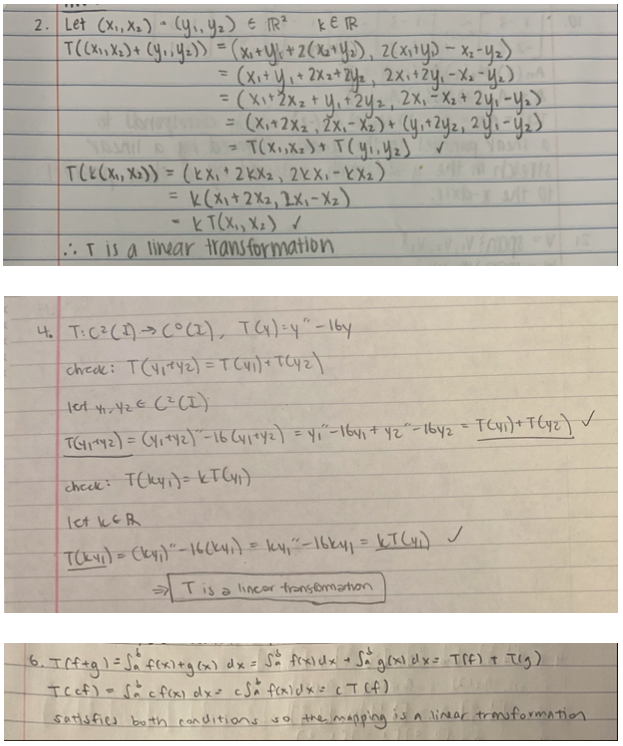 2. Let (x₁,x₂) · (y₁,y₂) ∈ ℝ² k∈ℝ
T((x₁,x₂) + (y₁,y₂)) = (x₁+y₁+2(x₂+y₂), 2(x₁+y₁) - x₂-y₂)
= (x₁+y₁+2x₂+2y₂, 2x₁+2y₁-x₂-y₂)
= (x₁+2x₂+y₁+2y₂, 2x₁-x₂+2y₁-y₂)
= (x₁+2x₂, 2x₁-x₂) + (y₁+2y₂, 2y₁-y₂)
= T(x₁,x₂) + T(y₁,y₂) ✓
T(k(x₁,x₂)) = (kx₁+2kx₂, 2kx₁-kx₂)
= k(x₁+2x₂, 2x₁-x₂)
= kT(x₁,x₂) ✓
∴ T is a linear transformation
4. T: C²(I) → C⁰(I), T(y) = y''-16y
check: T(y₁+y₂) = T(y₁)+T(y₂)
let y₁,y₂ ∈ C²(I)
T(y₁+y₂) = (y₁+y₂)''-16(y₁+y₂) = y₁''-16y₁+y₂''-16y₂ = T(y₁)+T(y₂) ✓
check: T(ky₁) = kT(y₁)
let k∈ℝ
T(ky₁) = (ky₁)''-16(ky₁) = ky₁''-16ky₁ = kT(y₁) ✓
⇒ T is a linear transformation
6. T(f+g) = ∫ₐᵇ f(x)+g(x) dx = ∫ₐᵇ f(x)dx + ∫ₐᵇ g(x)dx = T(f) + T(g)
T(cf) = ∫ₐᵇ cf(x) dx = c∫ₐᵇ f(x)dx = cT(f)
satisfies both conditions so the mapping is a linear transformation